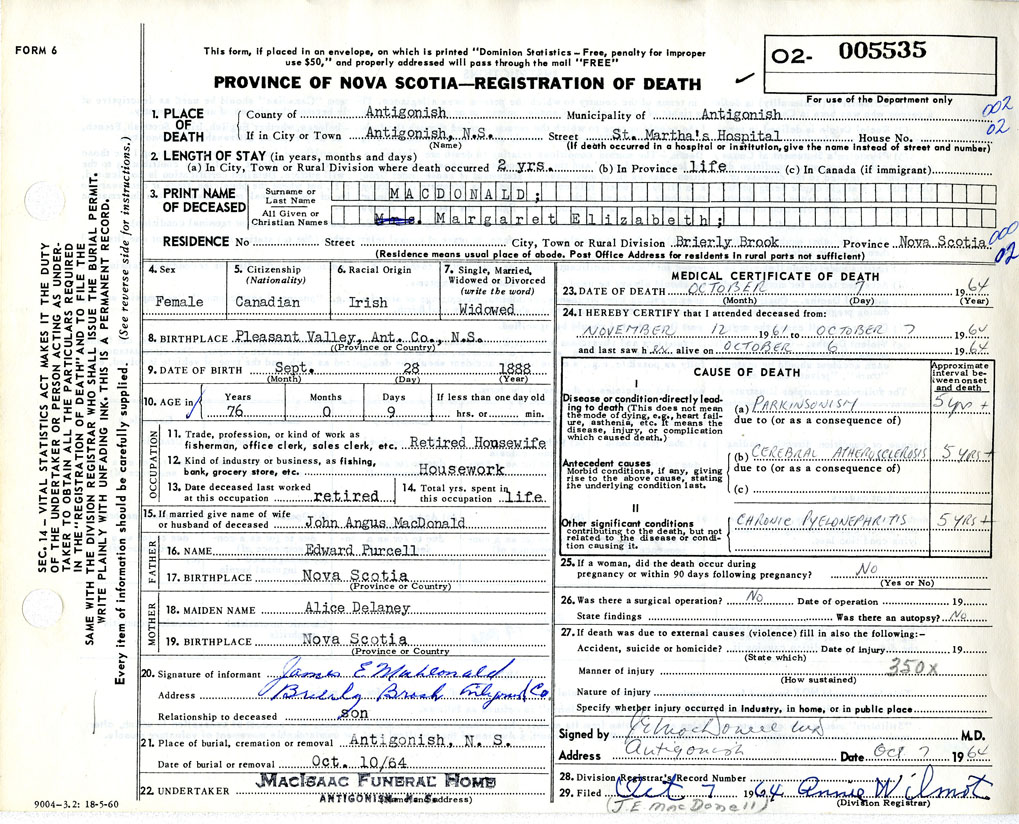 FORM 6
This form, if placed in an envelope, on which is printed "Dominion Statistics – Free, penalty for improper
use $50," and properly addressed will pass through the mail "FREE"
PROVINCE OF NOVA SCOTIA—REGISTRATION OF DEATH
02- 005535
For use of the Department only
SEC. 14 – VITAL STATISTICS ACT MAKES IT THE DUTY
OF THE UNDERTAKER OR PERSON ACTING AS UNDER-
TAKER TO OBTAIN ALL THE PARTICULARS REQUIRED
IN THE "REGISTRATION OF DEATH" AND TO FILE THE
SAME WITH THE DIVISION REGISTRAR WHO SHALL ISSUE THE BURIAL PERMIT.
WRITE PLAINLY WITH UNFADING INK. THIS IS A PERMANENT RECORD.
Every item of information should be carefully supplied. (See reverse side for instructions.)
1. PLACE OF DEATH
County of Antigonish Municipality of Antigonish 002
If in City or Town Antigonish, N.S. Street St. Martha's Hospital House No. 02
(Name) (If death occurred in a hospital or institution, give the name instead of street and number)
2. LENGTH OF STAY (in years, months and days)
(a) In City, Town or Rural Division where death occurred 2 yrs. (b) In Province life (c) In Canada (if immigrant)
3. PRINT NAME OF DECEASED
Surname or Last Name MACDONALD;
All Given or Christian Names Mrs. Margaret Elizabeth;
RESIDENCE No Street City, Town or Rural Division Brierly Brook Province Nova Scotia 000
(Residence means usual place of abode. Post Office Address for residents in rural parts not sufficient) 02
4. Sex
Female
5. Citizenship
(Nationality)
Canadian
6. Racial Origin
Irish
7. Single, Married,
Widowed or Divorced
(write the word)
Widowed
8. BIRTHPLACE Pleasant Valley, Ant. Co., N.S.
(Province or Country)
9. DATE OF BIRTH Sept. 28 1888
(Month) (Day) (Year)
10. AGE in
Years Months Days If less than one day old
76 0 9 hrs. or min.
OCCUPATION
11. Trade, profession, or kind of work as
fisherman, office clerk, sales clerk, etc. Retired Housewife
12. Kind of industry or business, as fishing,
bank, grocery store, etc. Housework
13. Date deceased last worked
at this occupation retired
14. Total yrs. spent in
this occupation life
15. If married give name of wife
or husband of deceased John Angus MacDonald
FATHER
16. NAME Edward Purcell
17. BIRTHPLACE Nova Scotia
(Province or Country)
MOTHER
18. MAIDEN NAME Alice Delaney
19. BIRTHPLACE Nova Scotia
(Province or Country)
20. Signature of informant James E MacDonald
Address Brierly Brook Antigonish Co
Relationship to deceased son
21. Place of burial, cremation or removal Antigonish, N. S.
Date of burial or removal Oct. 10/64
22. UNDERTAKER MACISAAC FUNERAL HOME
ANTIGONISH, N. S.
9004-3.2: 18-5-60
MEDICAL CERTIFICATE OF DEATH
23. DATE OF DEATH OCTOBER 7 1964
(Month) (Day) (Year)
24. I HEREBY CERTIFY that I attended deceased from:
NOVEMBER 12 1961 to OCTOBER 7 1964
and last saw her alive on OCTOBER 6 1964
CAUSE OF DEATH
Approximate
interval be-
tween onset
and death
I
Disease or condition directly lead-
ing to death (This does not mean
the mode of dying, e.g., heart fail-
ure, asthenia, etc. It means the
disease, injury, or complication
which caused death.)
(a) PARKINSONISM 5 yrs +
due to (or as a consequence of)
Antecedent causes
Morbid conditions, if any, giving
rise to the above cause, stating
the underlying condition last.
(b) CEREBRAL ATHEROSCLEROSIS 5 YRS+
due to (or as a consequence of)
(c)
II
Other significant conditions
contributing to the death, but not
related to the disease or condi-
tion causing it.
CHRONIC PYELONEPHRITIS 5 YRS +
25. If a woman, did the death occur during
pregnancy or within 90 days following pregnancy? No
(Yes or No)
26. Was there a surgical operation? No Date of operation 19
State findings Was there an autopsy? No
27. If death was due to external causes (violence) fill in also the following:–
Accident, suicide or homicide? Date of injury 19
(State which)
Manner of injury 350x
(How sustained)
Nature of injury
Specify whether injury occurred in industry, in home, or in public place
Signed by JE MacDonell MD M.D.
Address Antigonish Date Oct 7 1964
28. Division Registrar's Record Number
29. Filed Oct 7 1964 Annie Wilmot
(J.E MacDonell) (Division Registrar)